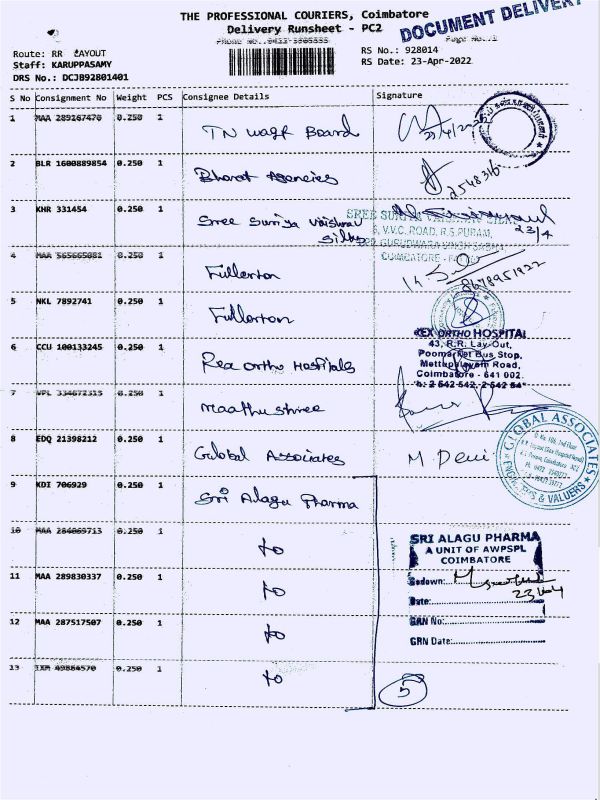 THE PROFESSIONAL COURIERS, Coimbatore
DOCUMENT DELIVERY
Delivery Runsheet - PC2
Page No.:1
Route: RR LAYOUT
RS No.: 928014
Staff: KARUPPASAMY
RS Date: 23-Apr-2022
DRS No.: DCJB92801401
S No Consignment No Weight PCS Consignee Details Signature
1 MAA 289167470 0.250 1 TN Wagf Board
2 BLR 1600889854 0.250 1 Bharat Agencies
2548316
3 KHR 331454 0.250 1 Sree Suriya Vaishnav Silks
23/4
V.V.C. ROAD, R.S. PURAM,
4 MAA 565665081 0.250 1 Fullerton
8678951922
5 NKL 7892741 0.250 1 Fullerton
REX ORTHO HOSPITAL
43, R.R. Lay-Out,
Poomarket Bus Stop,
Mettupalayam Road,
Coimbatore - 641 002.
6 CCU 100133245 0.250 1 Rex Ortho Hospitals
7 VPL 334672315 0.250 1 Maathu shree
8 EDQ 21398212 0.250 1 Global Associates
M Devi
GLOBAL ASSOCIATES
ENGINEERS & VALUERS
9 KDI 706929 0.250 1 Sri Alagu Pharma
10 MAA 0.250 1 to
SRI ALAGU PHARMA
A UNIT OF AWPSPL
COIMBATORE
11 MAA 289830337 0.250 1 to
Godown:
Date:
12 MAA 287517507 0.250 1 to
GRN No:
GRN Date:
13 IXM 49864570 0.250 1 to
5